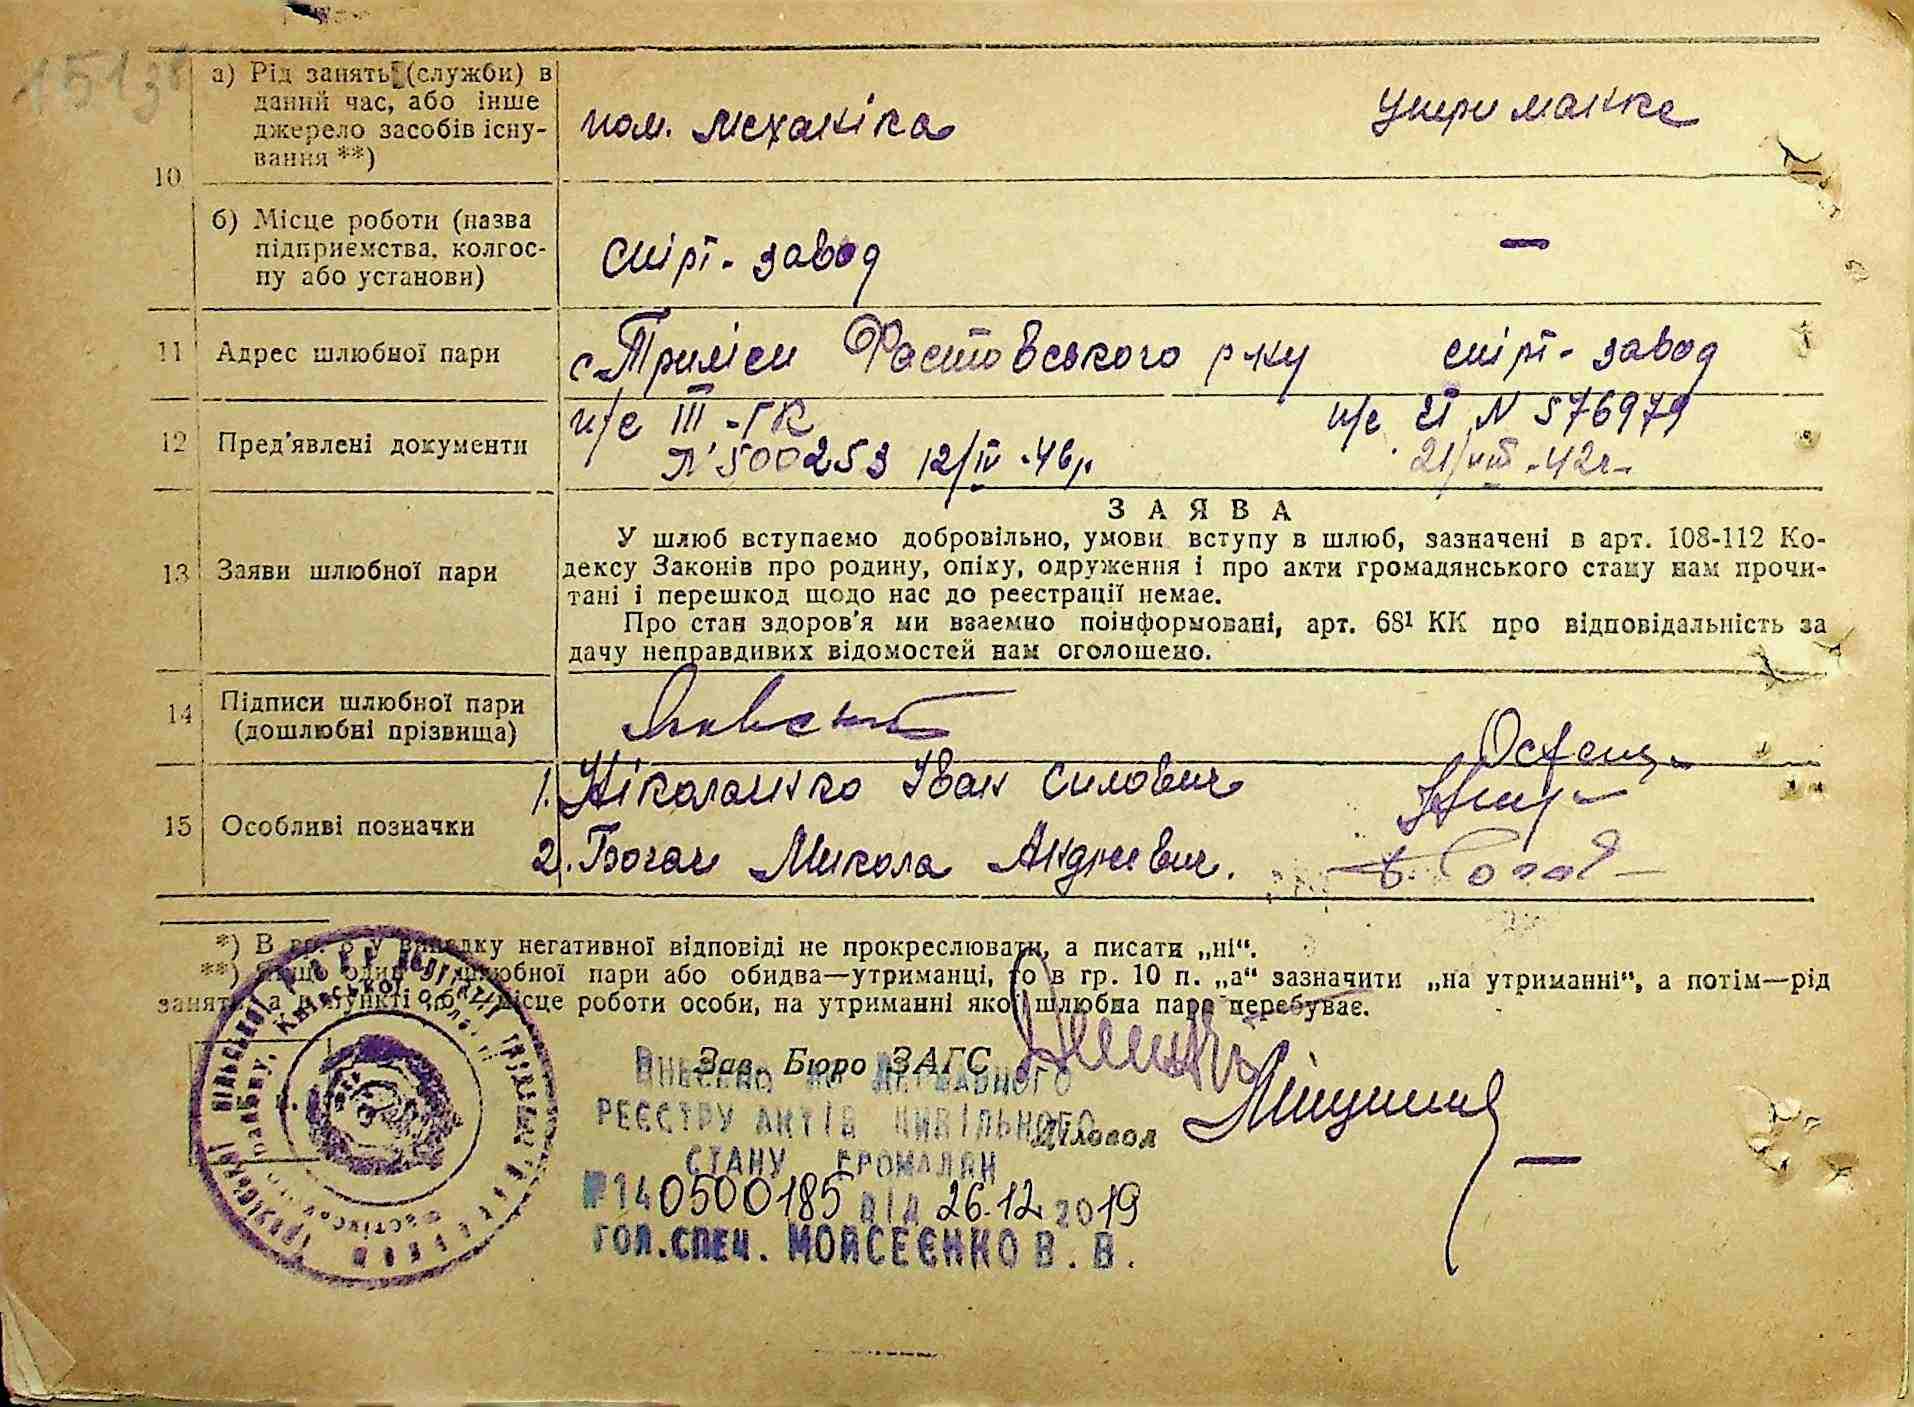 а) Рід занять (служби) в
даний час, або інше
джерело засобів існу-
вання **)
пом. механіка
утриманка
10
б) Місце роботи (назва
підприємства, колгос-
пу або установи)
спірт-завод
—
11 Адрес шлюбної пари
с. Триліси Фастовського р-ну спірт-завод
12 Пред'явлені документи
п/с III-ГК п/с N 576979
N 500253 12/IV-46р. 21/VIII-42г.
13 Заяви шлюбної пари
ЗАЯВА
У шлюб вступаємо добровільно, умови вступу в шлюб, зазначені в арт. 108-112 Ко-
дексу Законів про родину, опіку, одруження і про акти громадянського стану нам прочи-
тані і перешкод щодо нас до реєстрації немає.
Про стан здоров'я ми взаємно поінформовані, арт. 68¹ КК про відповідальність за
дачу неправдивих відомостей нам оголошено.
14 Підписи шлюбної пари
(дошлюбні прізвища)
15 Особливі позначки
1. Ніколаєнко Іван Силович
2. Богач Микола Андрієвич.
*) В гр. 8 у випадку негативної відповіді не прокреслювати, а писати „ні“.
**) Якщо один з шлюбної пари або обидва—утриманці, то в гр. 10 п. „а“ зазначити „на утриманні“, а потім—рід
занять, а в пункті „б“ місце роботи особи, на утриманні якої шлюбна пара перебуває.
Зав. Бюро ЗАГС
Діловод
ВНЕСЕНО ДО ДЕРЖАВНОГО
РЕЄСТРУ АКТІВ ЦИВІЛЬНОГО
СТАНУ ГРОМАДЯН
№140500185 ВІД 26.12 2019
ГОЛ.СПЕЦ. МОЙСЕЄНКО В. В.